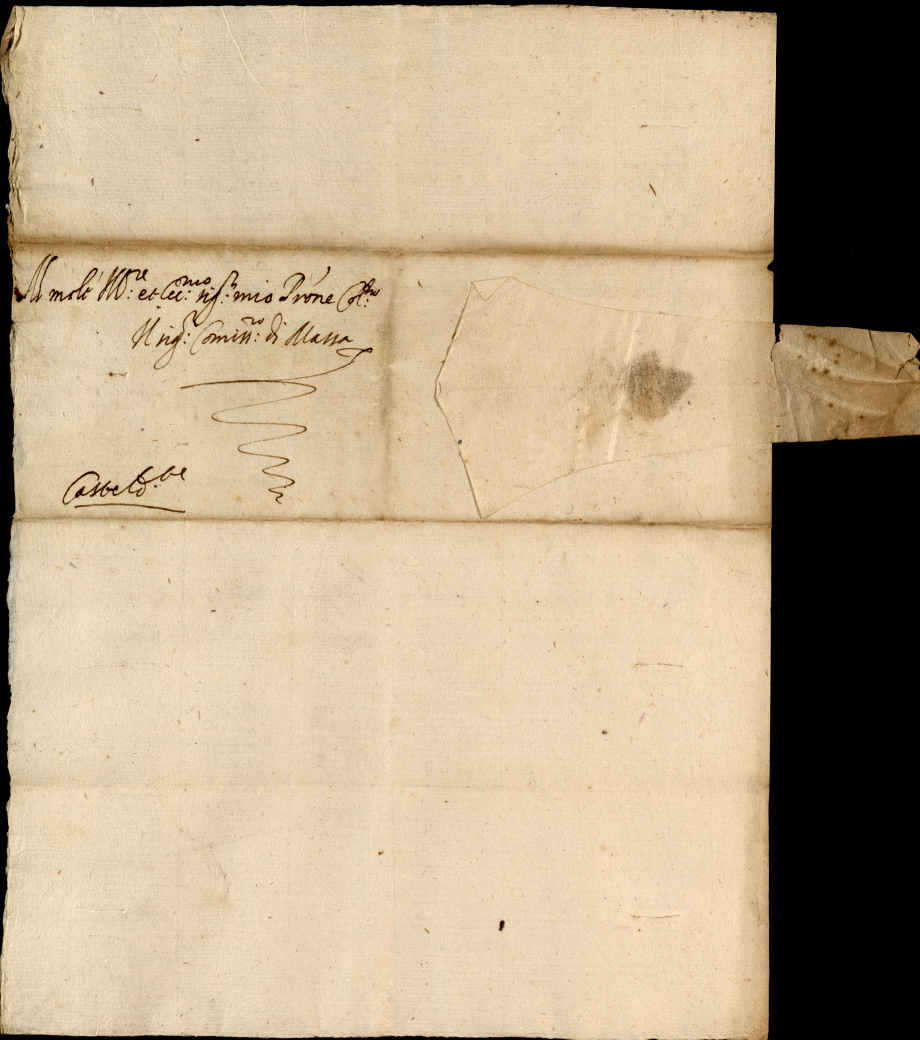 Al molt' Ill:re et Ecc:mo sig:r mio P'rone Col:mo
Il sig:r Comiss:ro di Massa
Casteld:be